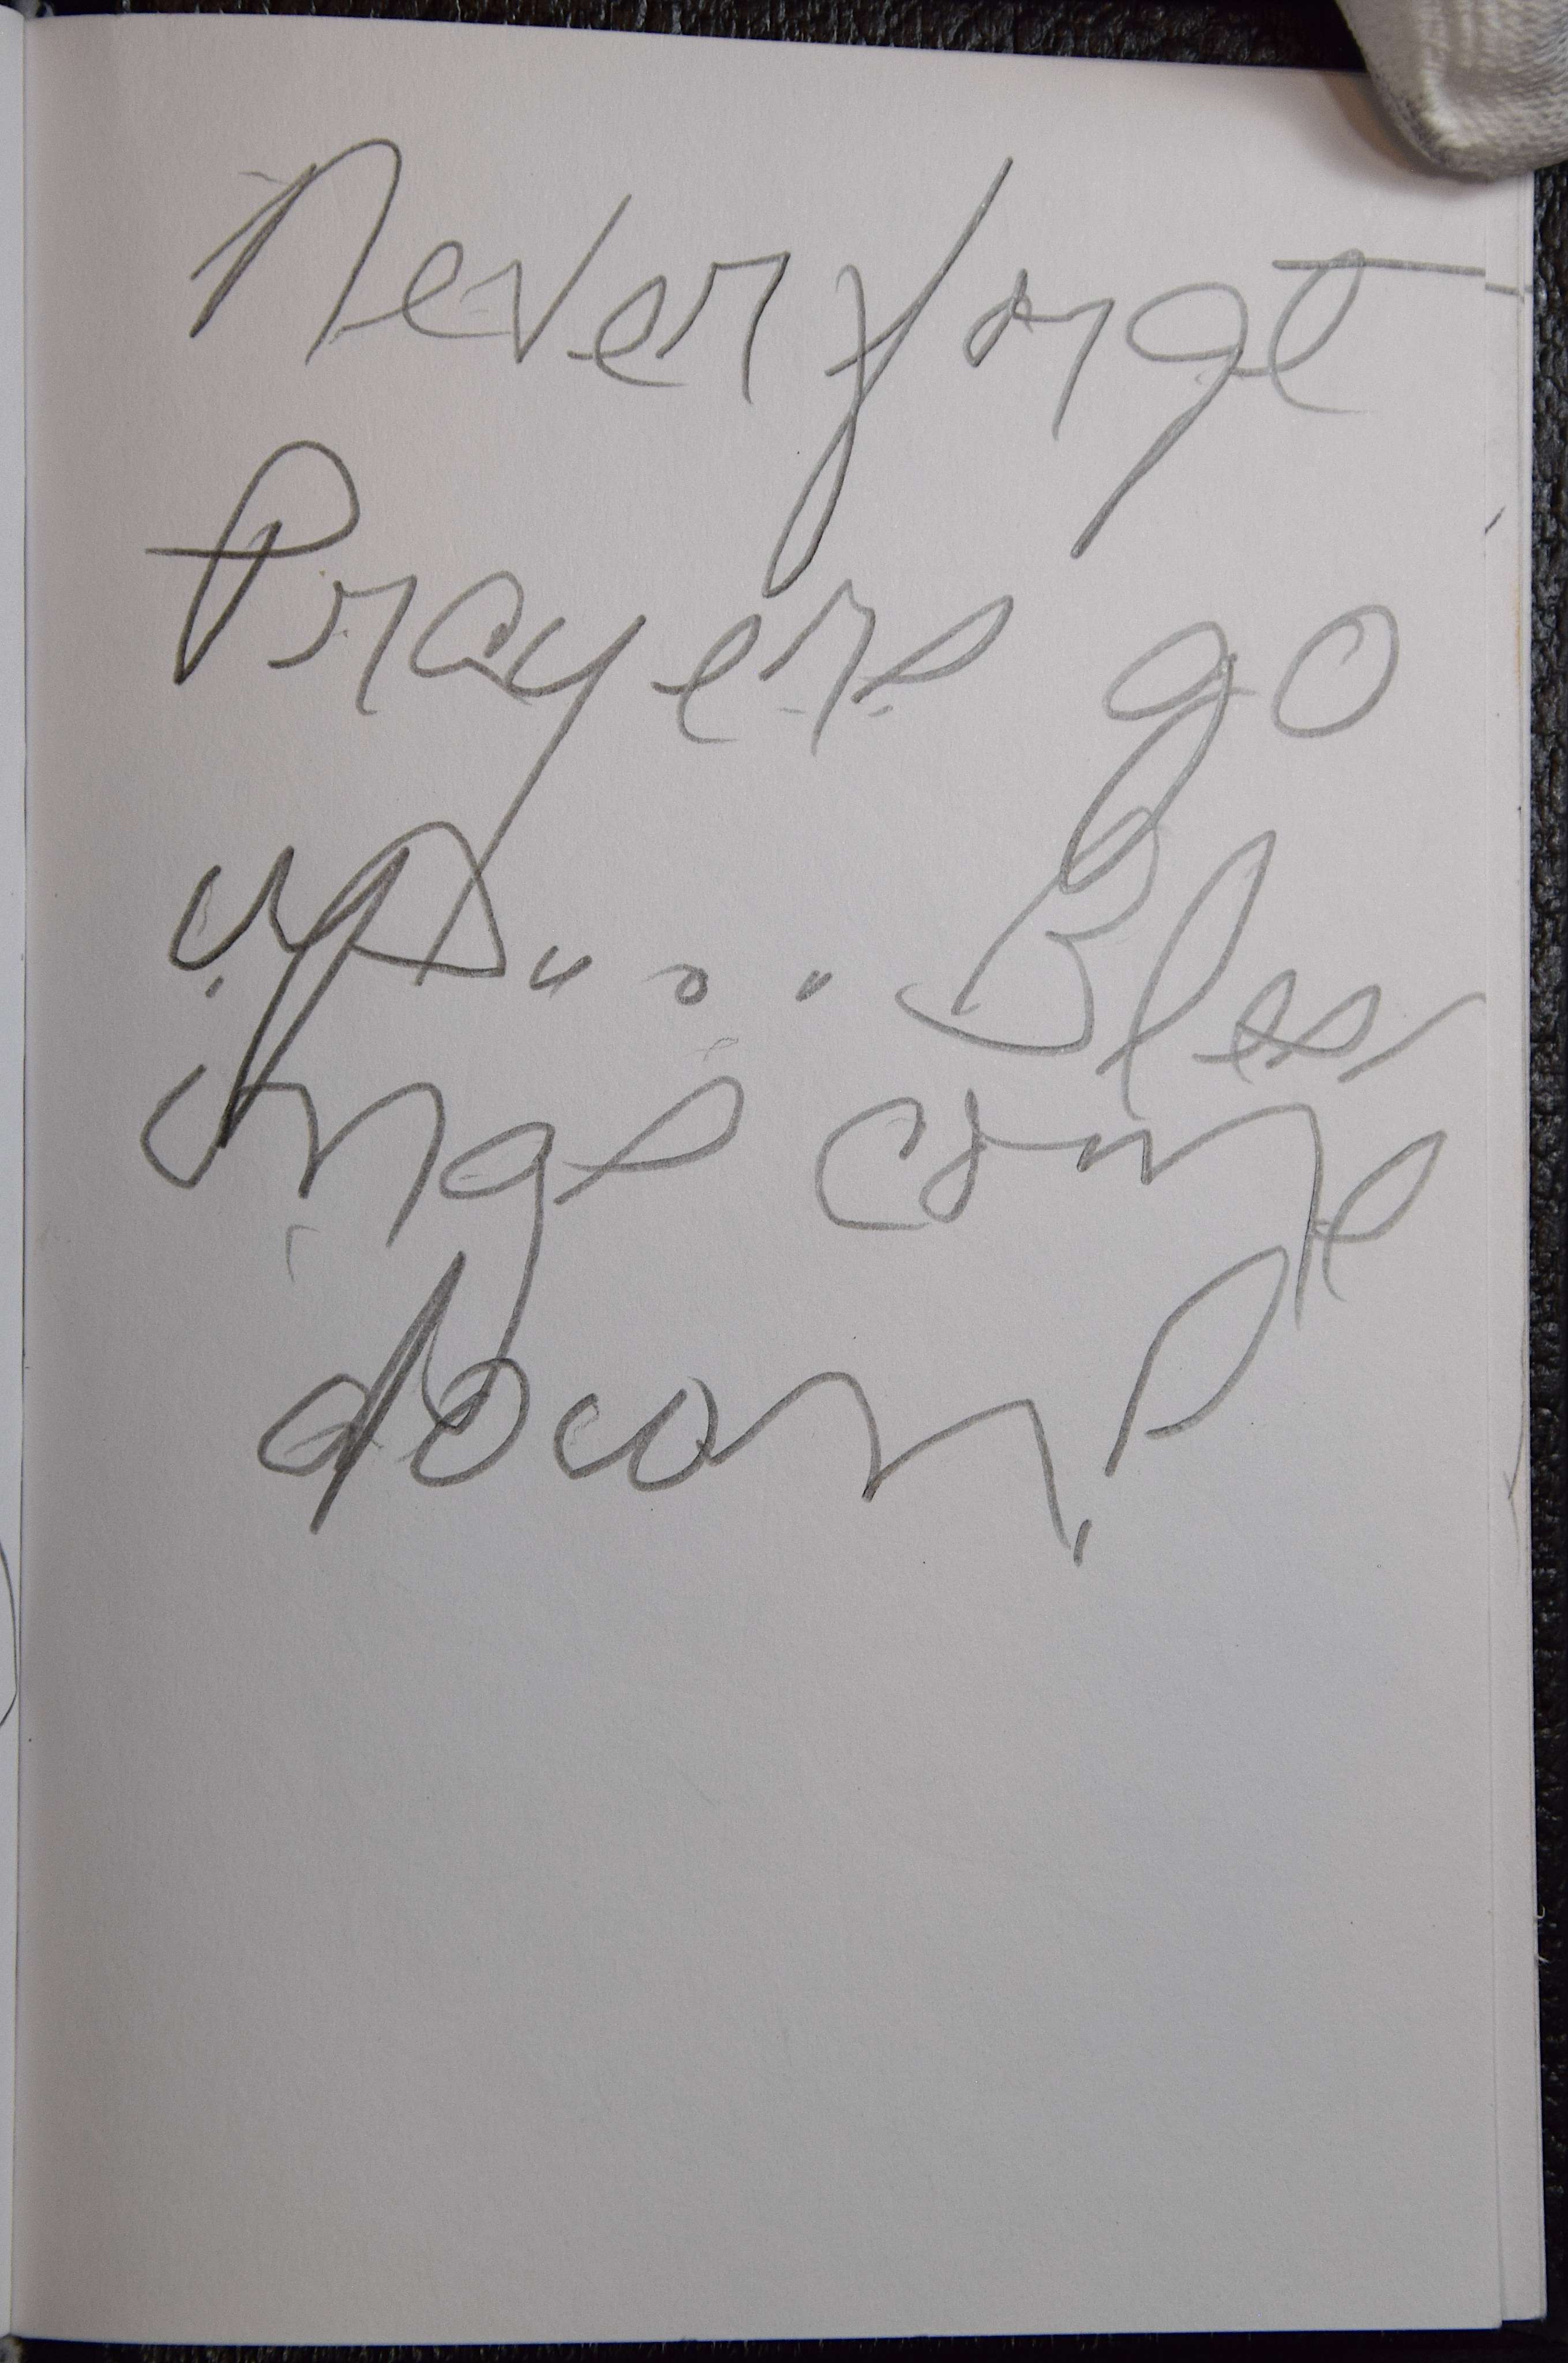 Never forget
Prayers go
up... Bless
ings come
down!